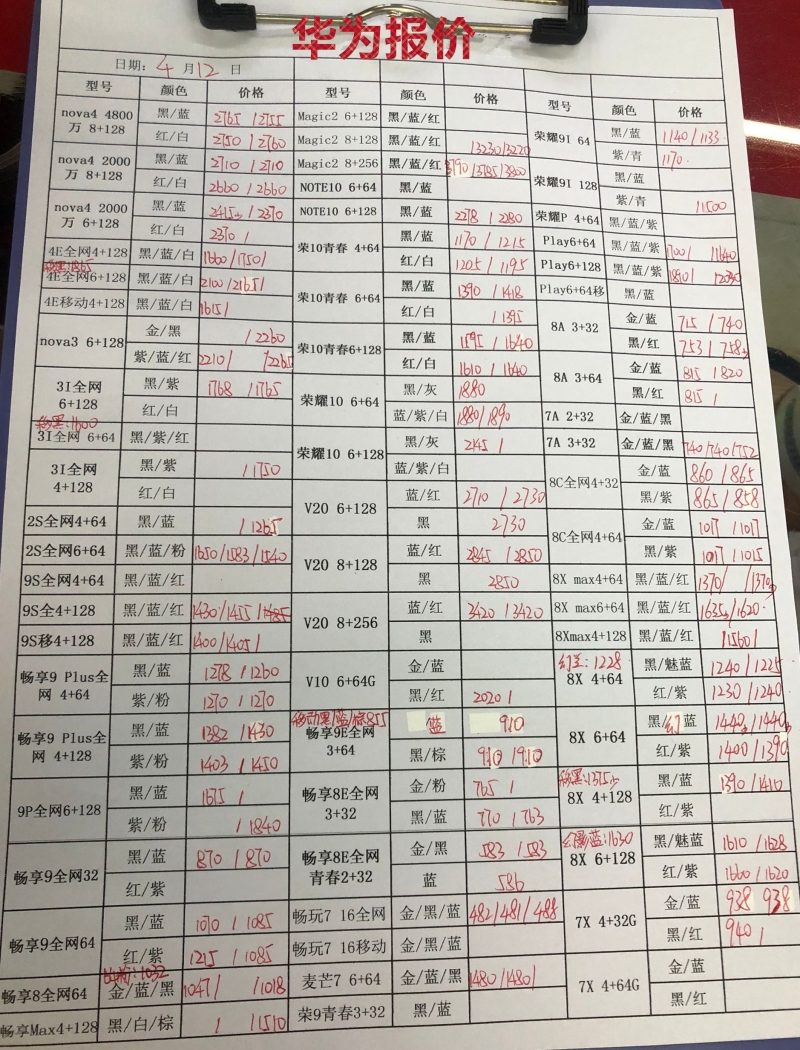 华为报价
日期: 4 月 12 日
型号 颜色 价格 型号 颜色 价格 型号 颜色 价格
nova4 4800万 8+128 黑/蓝 2765 /2755
红/白 2750 /2760
nova4 2000万 8+128 黑/蓝 2710 /2710
红/白 2660 /2660
nova4 2000万 6+128 黑/蓝 2415 /2370
红/白 2370 /
4E全网4+128 黑/蓝/白 1600/1750/
4E全网6+128 黑/蓝/白 2100/2165/
4E移动4+128 黑/蓝/白 1615/
nova3 6+128 金/黑 /2260
紫/蓝/红 2210/ /2265
3I全网 6+128 黑/紫 1768 /1765
红/白
3I全网 6+64 黑/紫/红
3I全网 4+128 黑/紫 /1750
红/白
2S全网4+64 黑/蓝 /1265
2S全网6+64 黑/蓝/粉 1650/1583/1540
9S全网4+64 黑/蓝/红
9S全4+128 黑/蓝/红 1430/1455/1485
9S移4+128 黑/蓝/红 1400/1405/
畅享9 Plus全网 4+64 黑/蓝 1278 /1260
紫/粉 1270 /1270
畅享9 Plus全网 4+128 黑/蓝 1382 /1430
紫/粉 1403 /1450
9P全网6+128 黑/蓝 1675 /
紫/粉 /1840
畅享9全网32 黑/蓝 870 /870
红/紫
畅享9全网64 黑/蓝 1070 /1085
红/紫 1215 /1085
畅享8全网64 金/蓝/黑 1047/ /1018
畅享Max4+128 黑/白/棕 / /1510
Magic2 6+128 黑/蓝/红
Magic2 8+128 黑/蓝/红 /3230/3220
Magic2 8+256 黑/蓝/红 3790/3785/3800
NOTE10 6+64 黑/蓝
NOTE10 6+128 黑/蓝 2278 /2280
荣10青春 4+64 黑/蓝 1170 /1215
红/白 1205 /1195
荣10青春 6+64 黑/蓝 1390 /1418
红/白 /1395
荣10青春6+128 黑/蓝 1595 /1640
红/白 1610 /1640
荣耀10 6+64 黑/灰 1880
蓝/紫/白 1880/1890
荣耀10 6+128 黑/灰 2145 /
蓝/紫/白
V20 6+128 蓝/红 2710 /2730
黑 2730
V20 8+128 蓝/红 2845 /2850
黑 2850
V20 8+256 蓝/红 3420 /3420
黑
V10 6+64G 金/蓝
黑/红 2020 /
畅享9E全网 3+64 蓝 910
黑/棕 910 /910
畅享8E全网 3+32 金/粉 765 /
黑/蓝 770 /763
畅享8E全网青春2+32 金/黑 583 /583
蓝 586
畅玩7 16全网 金/黑/蓝 482/481/488
畅玩7 16移动 金/黑/蓝
麦芒7 6+64 金/蓝/黑 1480/1480/
荣9青春3+32 黑/蓝
荣耀9I 64 黑/蓝 1140 /1133
紫/青 1170
荣耀9I 128 黑/蓝
紫/青 /1500
荣耀P 4+64 黑/蓝/紫
Play6+64 黑/蓝/紫 1700/ /1640
Play6+128 黑/蓝/紫
Play6+64移 黑/蓝
8A 3+32 金/蓝 715 /740
黑/红 753 /758
8A 3+64 金/蓝 815 /820
黑/红 815 /
7A 2+32 金/蓝/黑
7A 3+32 金/蓝/黑 740/740/752
8C全网4+32 金/蓝 860 /865
黑/紫 865 /858
8C全网4+64 金/蓝 1017 /1017
黑/紫 1017 /1015
8X max4+64 黑/蓝/红 1370/ /1370
8X max6+64 黑/蓝/红 1635/1620
8Xmax4+128 黑/蓝/红 /1560/
8X 4+64 黑/魅蓝 1240 /1225
红/紫 1230 /1240
8X 6+64 黑/幻蓝 1440/1440
红/紫 1400 /1390
8X 4+128 黑/蓝 1390 /1410
红/紫
幻影蓝:1630
8X 6+128 黑/魅蓝 1610 /1628
红/紫 1660 /1620
7X 4+32G 金/蓝 938 938
黑/红 940 /
7X 4+64G 金/蓝
黑/红